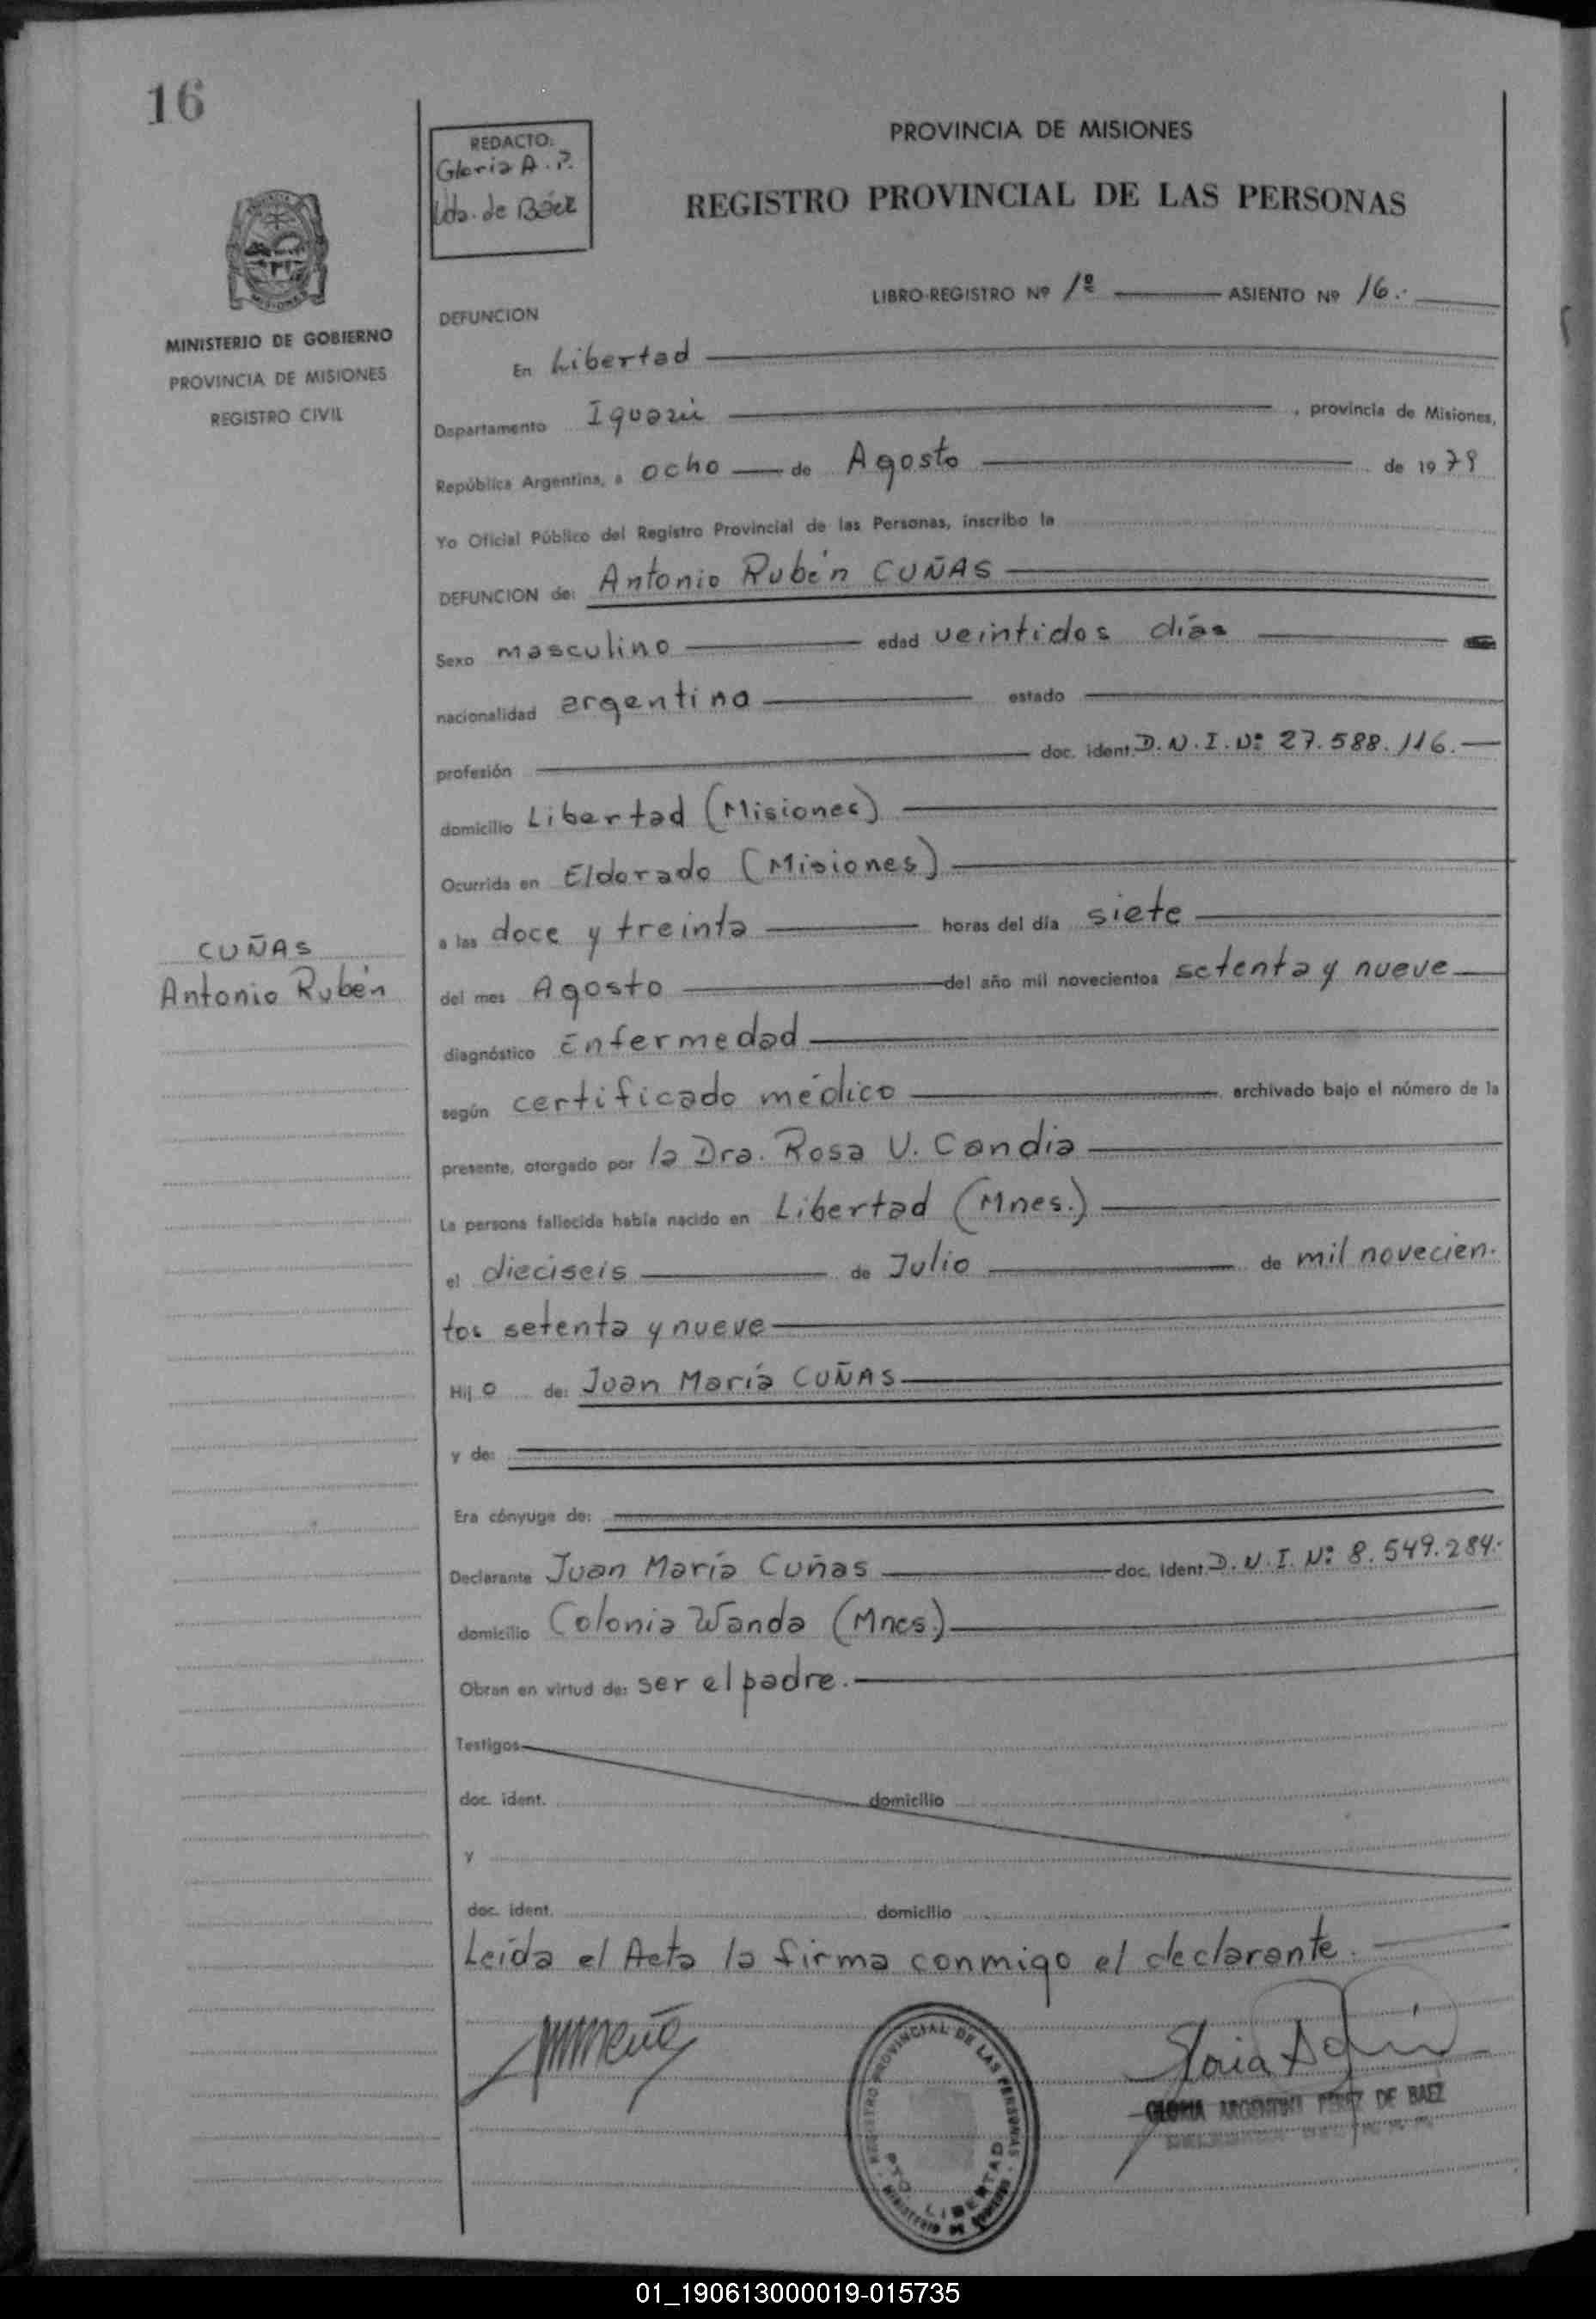 16
REDACTO:
Gloria A. P.
de Báez
PROVINCIA DE MISIONES
REGISTRO PROVINCIAL DE LAS PERSONAS
MINISTERIO DE GOBIERNO
PROVINCIA DE MISIONES
REGISTRO CIVIL
LIBRO-REGISTRO Nº 1º ASIENTO Nº 16.-
DEFUNCION
En Libertad
Departamento Iguazú , provincia de Misiones,
República Argentina, a ocho de Agosto de 1979
Yo Oficial Público del Registro Provincial de las Personas, inscribo la
DEFUNCION de: Antonio Rubén CUÑAS
Sexo masculino edad veintidos días
nacionalidad argentina estado
profesión doc. ident. D.N.I. Nº 27.588.116.
domicilio Libertad (Misiones)
Ocurrida en Eldorado (Misiones)
a las doce y treinta horas del día siete
CUÑAS
Antonio Rubén
del mes Agosto del año mil novecientos setenta y nueve
diagnóstico Enfermedad
según certificado médico archivado bajo el número de la
presente, otorgado por la Dra. Rosa V. Candia
La persona fallecida había nacido en Libertad (Mnes.)
el dieciseis de Julio de mil novecien.
tos setenta y nueve
Hijo de: Juan María CUÑAS
y de:
Era cónyuge de:
Declarante Juan María Cuñas doc. Ident D.N.I. Nº 8.549.284.
domicilio Colonia Wanda (Mnes.)
Obran en virtud de: ser el padre.
Testigos
doc. ident. domicilio
y
doc. ident. domicilio
Leída el Acta la firma conmigo el declarante.
REGISTRO PROVINCIAL DE LAS PERSONAS
PTO. LIBERTAD
MINISTERIO DE GOBIERNO
GLORIA ARGENTINA PEREZ DE BAEZ
01_190613000019-015735